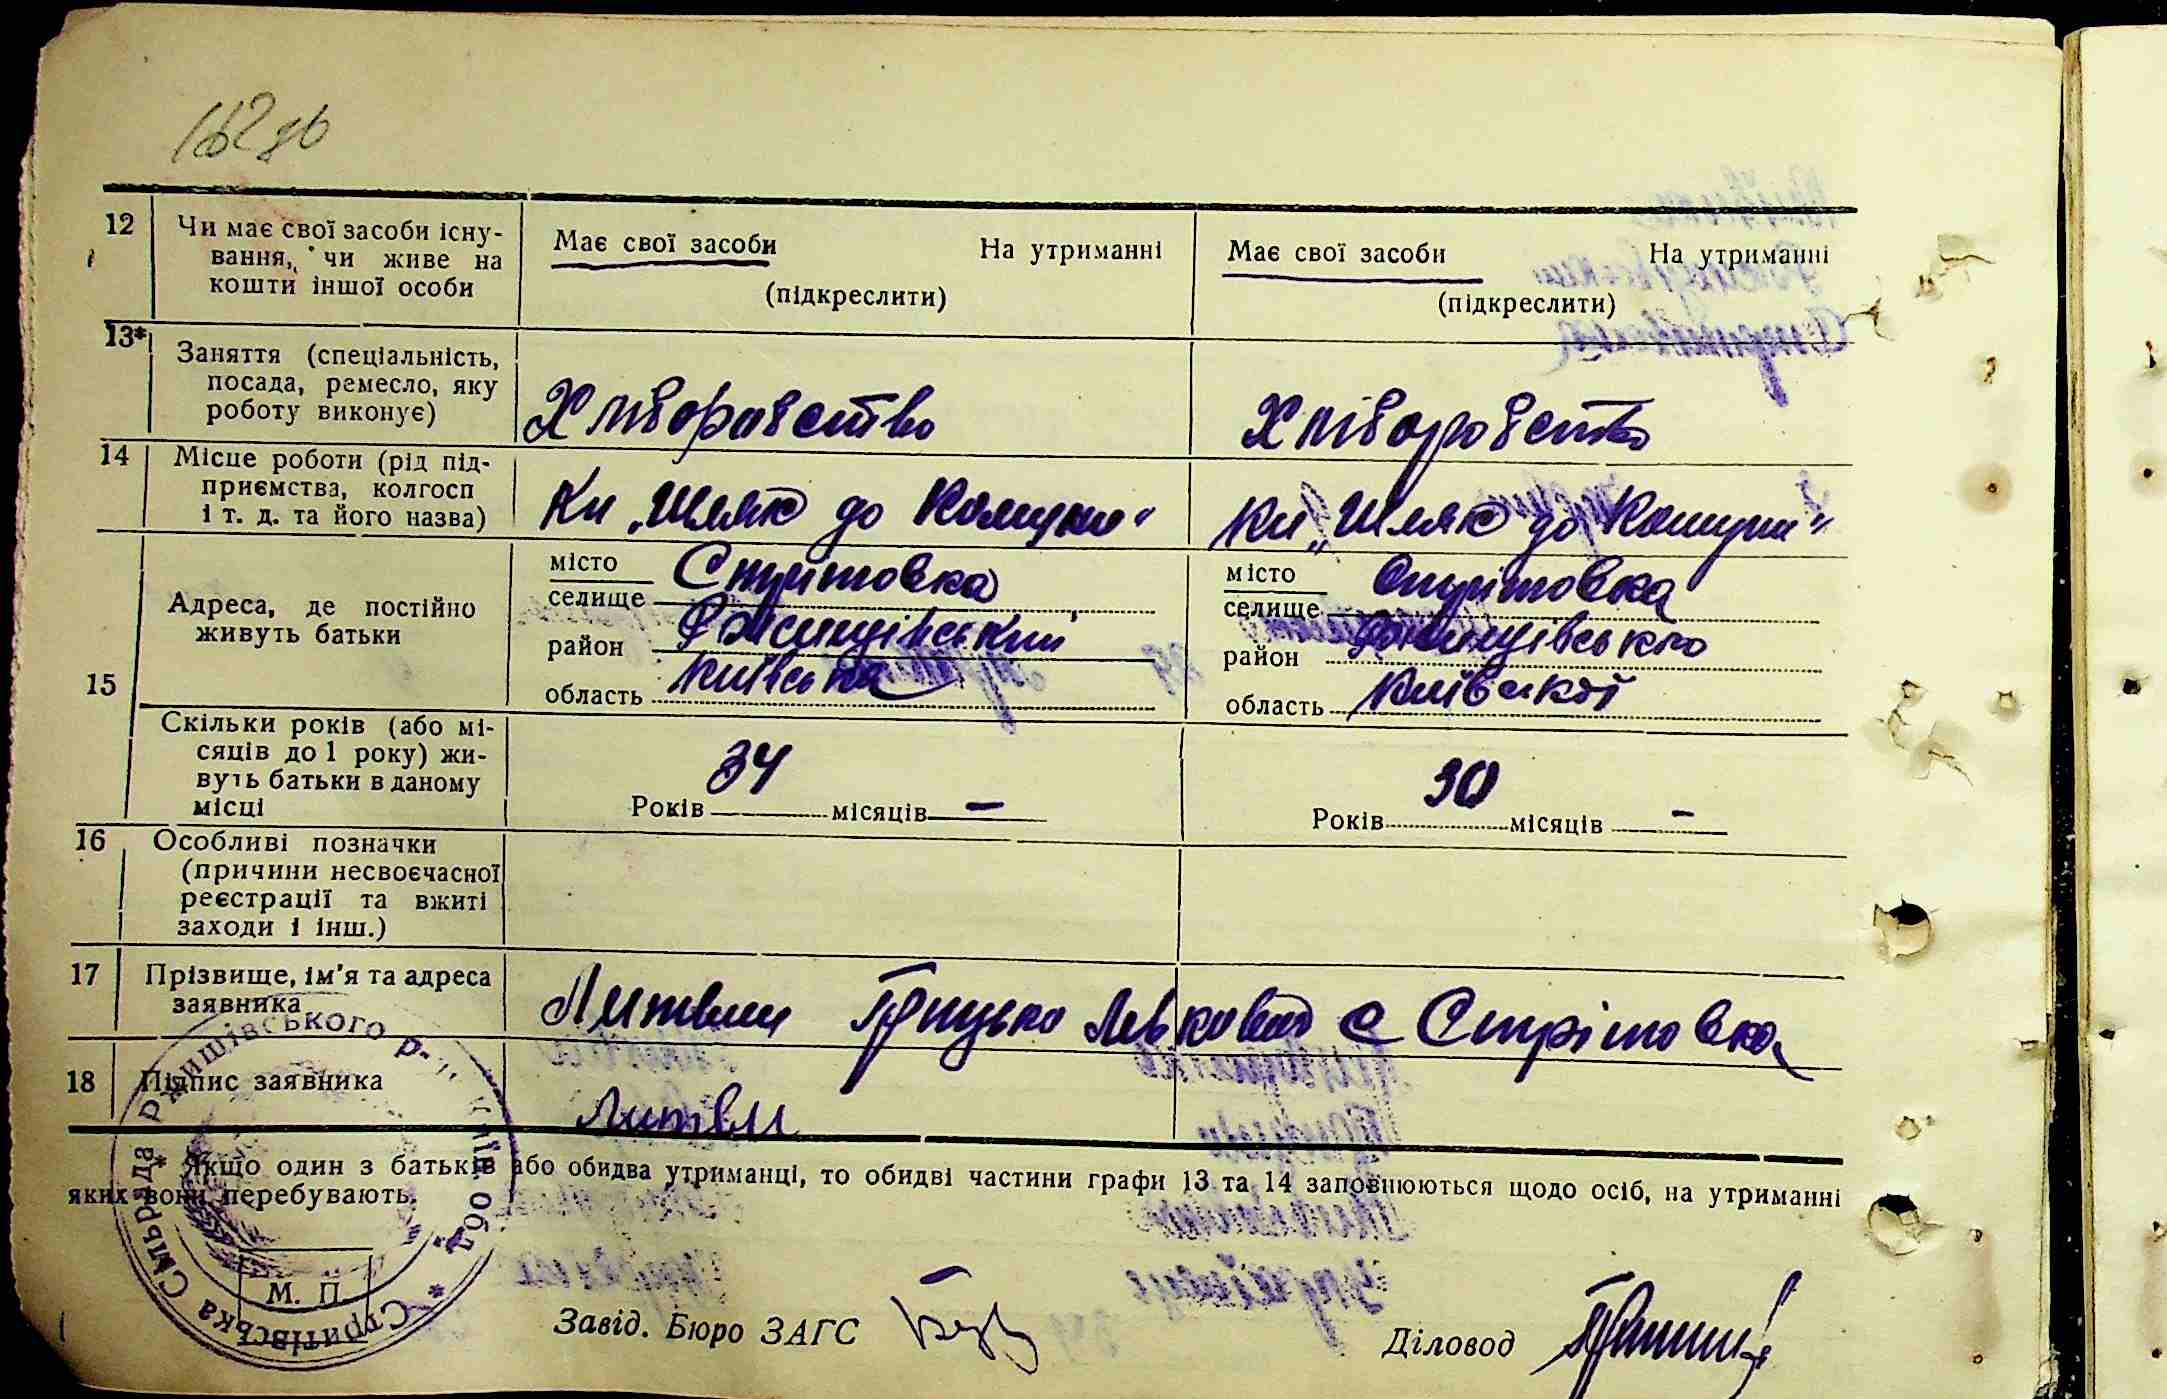 162 зв
12 Чи має свої засоби існу-
вання, чи живе на
кошти іншої особи
Має свої засоби На утриманні
(підкреслити)
Має свої засоби На утриманні
(підкреслити)
13* Заняття (спеціальність,
посада, ремесло, яку
роботу виконує)
Хліборобство
Хліборобство
14 Місце роботи (рід під-
приємства, колгосп
і т. д. та його назва)
Кп „Шлях до Комуни“
Кп „Шлях до Комуни“
15 Адреса, де постійно
живуть батьки
місто
селище Стрітовка
район Ржищівський
область Київська
місто
селище Стрітовка
район Ржищівського
область Київської
Скільки років (або мі-
сяців до 1 року) жи-
вуть батьки в даному
місці
34
Років місяців —
30
Років місяців —
16 Особливі позначки
(причини несвоєчасної
реєстрації та вжиті
заходи і інш.)
17 Прізвище, ім'я та адреса
заявника
Литвин Грицько Левкович с Стрітовка
18 Підпис заявника
Литвин
* Якщо один з батьків або обидва утриманці, то обидві частини графи 13 та 14 заповнюються щодо осіб, на утриманні
яких вони перебувають.
Стритівська сільрада Ржищівського р-ну Київ. обл.
М. П.
Завід. Бюро ЗАГС
Діловод